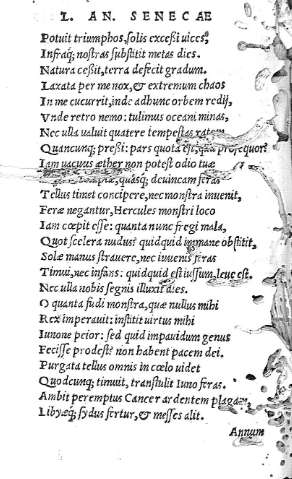 L. AN. SENECAE
Potuit triumphos, solis excessit uices,
Infraq; nostras substitit metas dies.
Natura cessit, terra defecit gradum.
Laxata per me nox, & extremum chaos
In me cucurrit, inde ad hunc orbem redij,
Vnde retro nemo: tulimus oceani minas,
Nec ulla ualuit quatere tempestas ratem
Quancunq; pressi: pars quota est, quā prosequor?
Iam uacuus æther non potest odio tuæ
quasq; deuincam feras
Tellus timet concipere, nec monstra inuenit,
Feræ negantur, Hercules monstri loco
Iam cœpit esse: quanta nunc fregi mala,
Quot scelera nudus? quidquid immane obstitit,
Solæ manus strauere, nec iuuenis feras
Timui, nec infans: quidquid est iussum, leue est.
Nec ulla nobis segnis illuxit dies.
O quanta fudi monstra, quæ nullus mihi
Rex imperauit: institit uirtus mihi
Iunone peior: sed quid impauidum genus
Fecisse prodest? non habent pacem dei.
Purgata tellus omnis in cœlo uidet
Quodcunq; timuit, transtulit Iuno feras.
Ambit peremptus Cancer ardentem plagam,
Libyæq; sydus fertur, & messes alit.
Annum